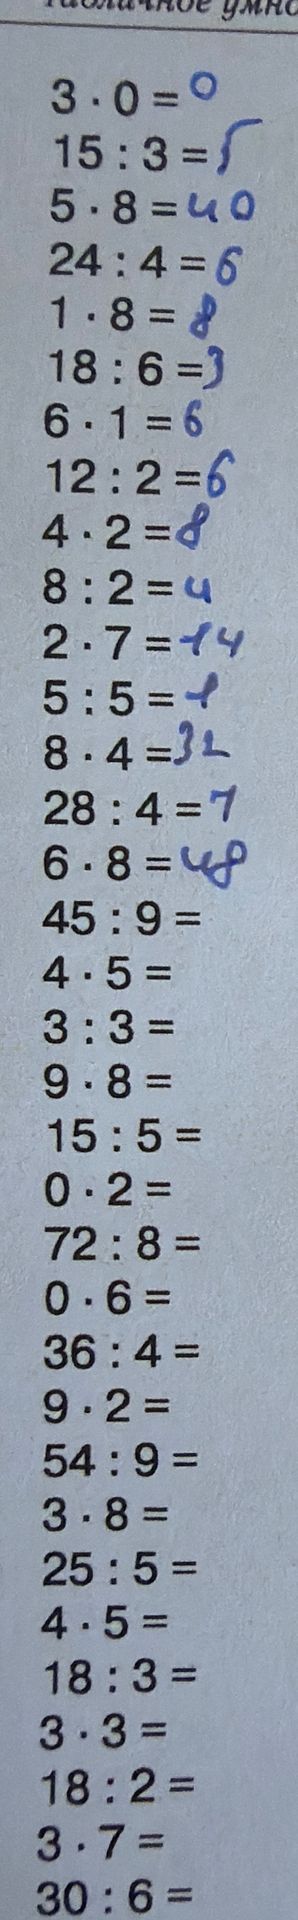 Табличное умно
3 · 0 = 0
15 : 3 = 5
5 · 8 = 40
24 : 4 = 6
1 · 8 = 8
18 : 6 = 3
6 · 1 = 6
12 : 2 = 6
4 · 2 = 8
8 : 2 = 4
2 · 7 = 14
5 : 5 = 1
8 · 4 = 32
28 : 4 = 7
6 · 8 = 48
45 : 9 =
4 · 5 =
3 : 3 =
9 · 8 =
15 : 5 =
0 · 2 =
72 : 8 =
0 · 6 =
36 : 4 =
9 · 2 =
54 : 9 =
3 · 8 =
25 : 5 =
4 · 5 =
18 : 3 =
3 · 3 =
18 : 2 =
3 · 7 =
30 : 6 =